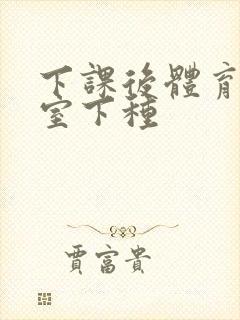 下課後體育
室下種
賈富貴